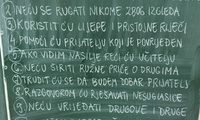 ② NEĆU SE RUGATI NIKOME ZBOG IZGLEDA
③ KORISTIT ĆU LIJEPE I PRISTOJNE RIJEČI
④ POMOĆI ĆU PRIJATELJU KOJI JE POVRIJEĐEN
⑤ AKO VIDIM NASILJE REĆI ĆU UČITELJU
⑥ NEĆU ŠIRITI RUŽNE PRIČE O DRUGIMA
⑦ TRUDIT ĆU SE DA BUDEM DOBAR PRIJATELJ
⑧ RAZGOVOROM ĆU RJEŠAVATI NESUGLASICE
⑨ NEĆU VRIJEĐATI DRUGOVE I DRUGE